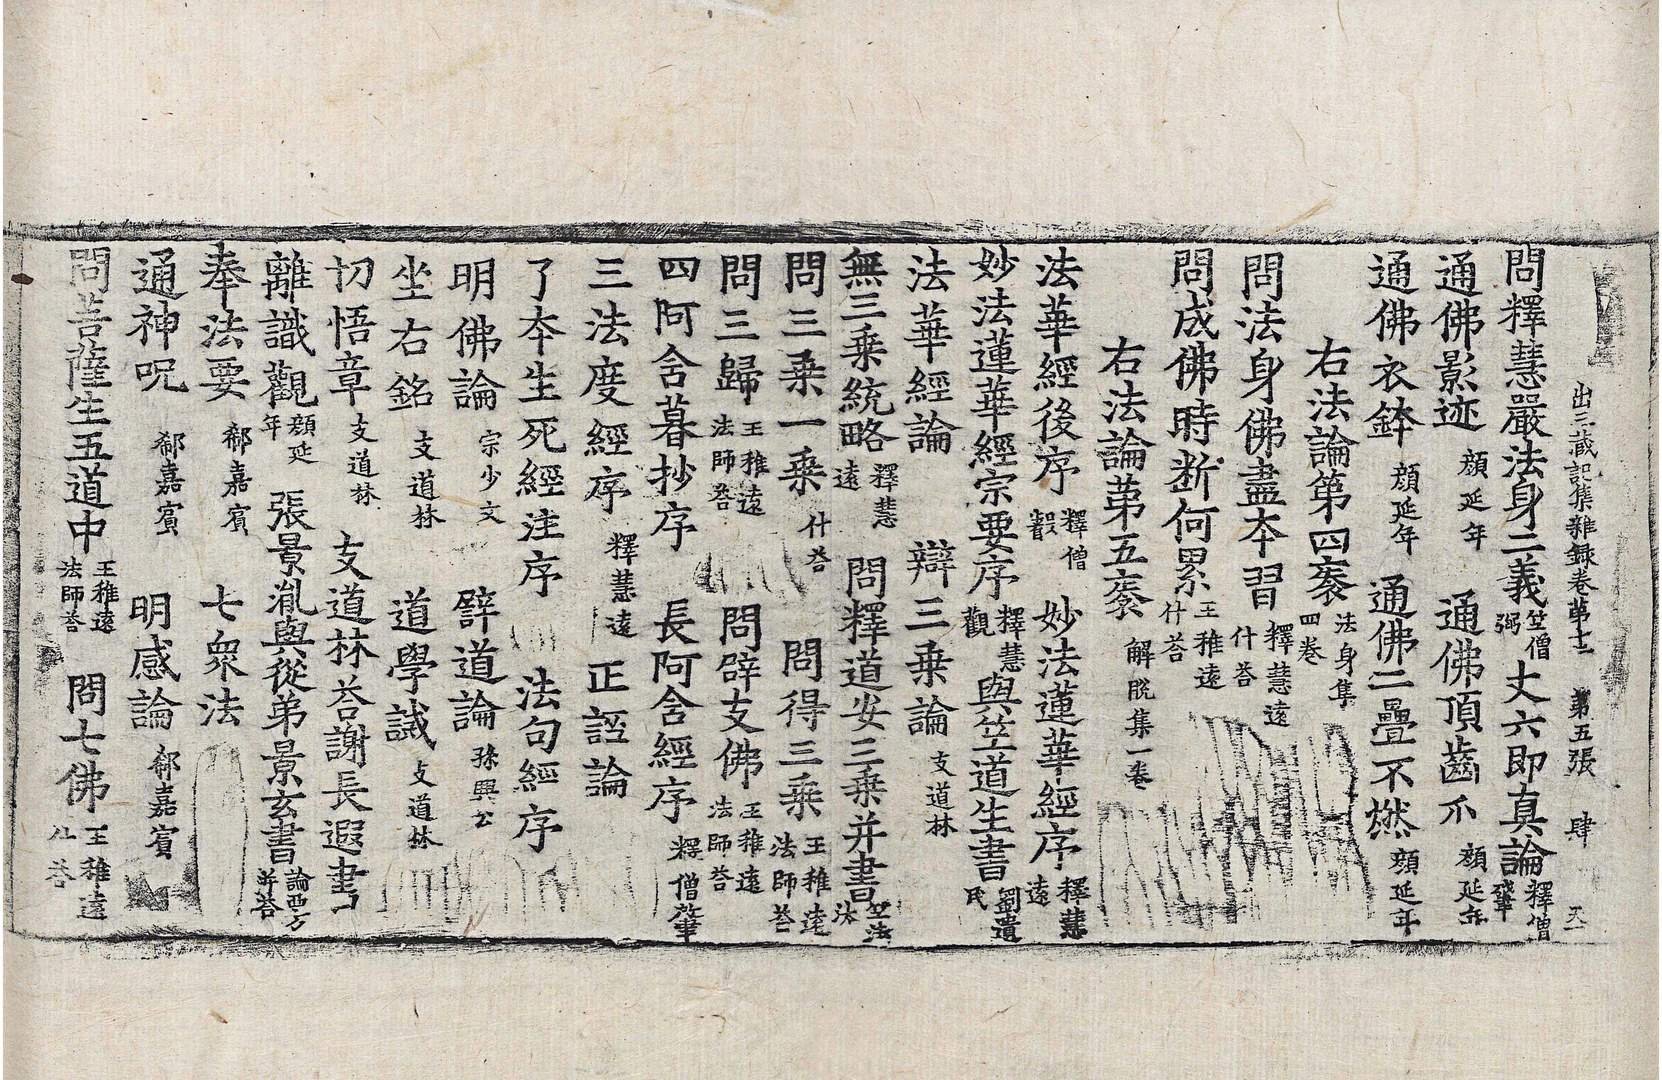 出三藏記集雜録卷第十二 第五張 肆
問釋慧嚴法身二義竺僧弼 丈六即真論釋僧肇
通佛影迹顔延年 通佛頂齒爪顔延年
通佛衣鉢顔延年 通佛二疊不燃顔延年
右法論第四袠法身集四卷
問法身佛盡本習釋慧遠什荅
問成佛時断何累王稚遠什荅
右法論苐五袠解脱集一卷
法華經後序釋僧叡 妙法蓮華經序釋慧遠
妙法蓮華經宗要序釋慧觀 與竺道生書劉遺民
法華經論 辯三乗論支道林
無三乗統略釋慧遠 問釋道安三乗并書竺法汰
問三乗一乗什荅 問得三乗王稚遠法師荅
問三歸王稚遠法師荅 問辟支佛王稚遠法師荅
四阿含暮抄序 長阿含經序釋僧肇
三法度經序釋慧遠 正誣論
了本生死經注序 法句經序
明佛論宗少文 譬道論孫興公
坐右銘支道林 道學誡支道林
切悟章支道林 支道林荅謝長遐書
離識觀顔延年 張景胤與從弟景玄書論西方并荅
奉法要郗嘉賓 七衆法
通神呪郗嘉賓 明感論郗嘉賓
問菩薩生五道中王稚遠法師荅 問七佛王稚遠什荅